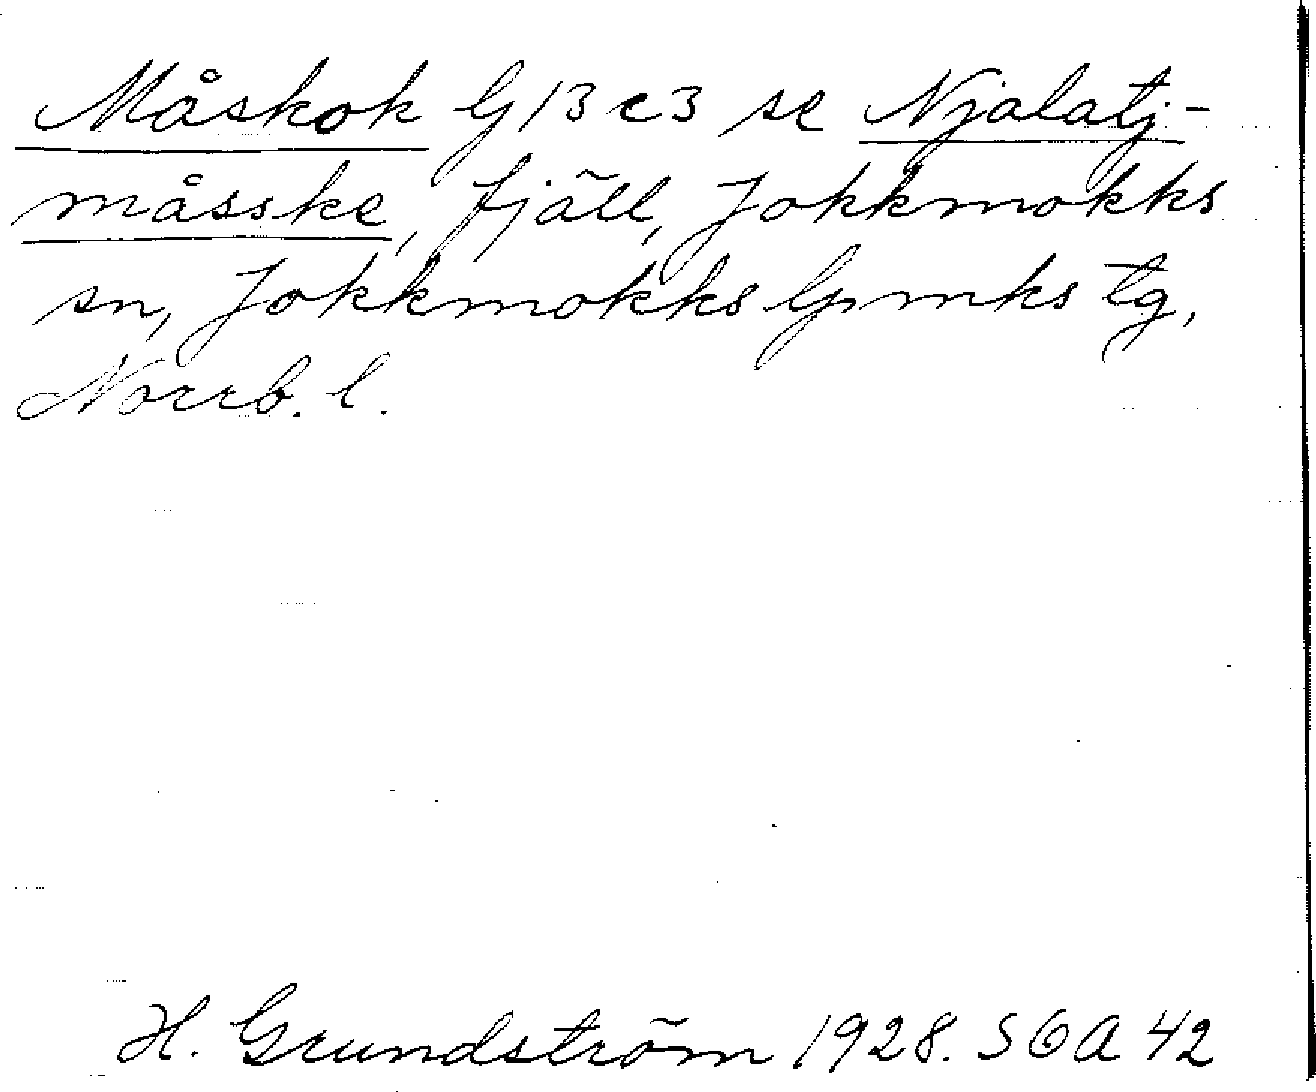 Måskok G13c3 se Njalatj-
måsske, fjäll, Jokkmokks
sn, Jokkmokks lpmks tg,
Norrb. l.
H. Grundström 1928. SOA 42